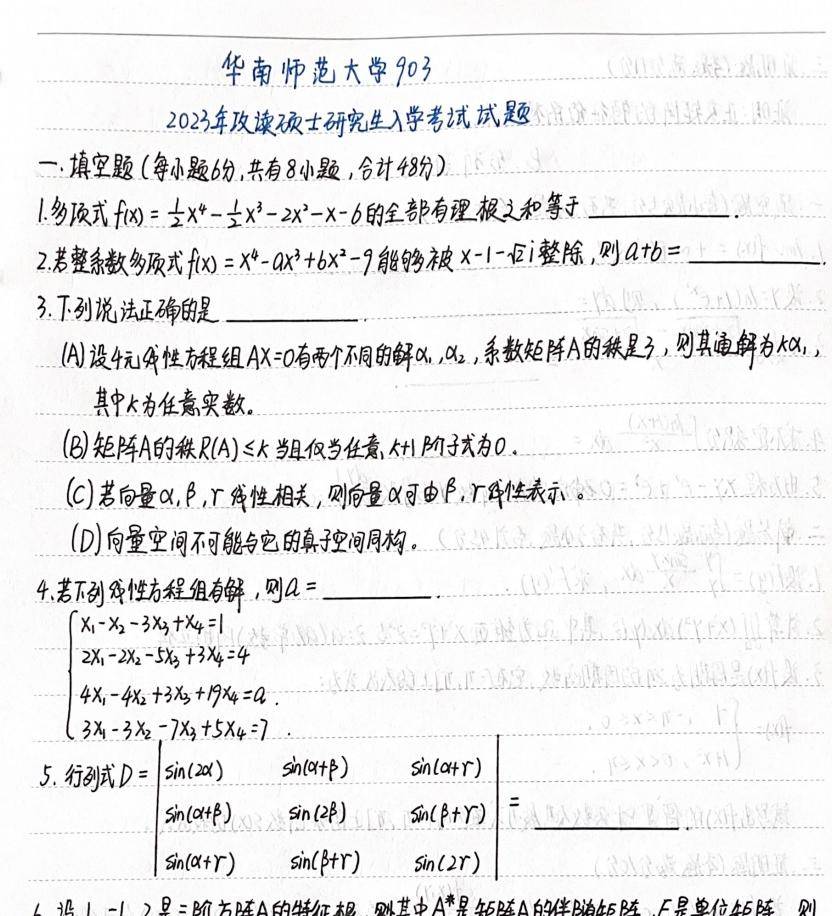 华南师范大学903
2023年攻读硕士研究生入学考试试题
一.填空题(每小题6分,共有8小题,合计48分)
1.多项式 f(x) = ½x⁴ - ½x³ - 2x² - x - 6 的全部有理根之和等于 ________.
2.若整系数多项式 f(x) = x⁴ - ax³ + bx² - 9 能够被 x-1-√2i 整除,则 a+b = ________.
3.下列说法正确的是 ________.
(A) 设4元线性方程组 AX=0有两个不同的解α₁,α₂,系数矩阵A的秩是3,则其通解为kα₁,
其中k为任意实数。
(B) 矩阵A的秩R(A)≤k当且仅当任意k+1阶子式为0.
(C) 若向量α,β,γ线性相关,则向量α可由β,γ线性表示。
(D) 向量空间不可能与它的真子空间同构。
4.若下列线性方程组有解,则a = ________.
x₁-x₂-3x₃+x₄=1
2x₁-2x₂-5x₃+3x₄=4
4x₁-4x₂+3x₃+19x₄=a.
3x₁-3x₂-7x₃+5x₄=7.
5. 行列式D = | sin(2α) sin(α+β) sin(α+γ) |
| sin(α+β) sin(2β) sin(β+γ) | = ________.
| sin(α+γ) sin(β+γ) sin(2γ) |
6.设1,-1,2是三阶方阵A的特征根,则其中A*是矩阵A的伴随矩阵,E是单位矩阵,则